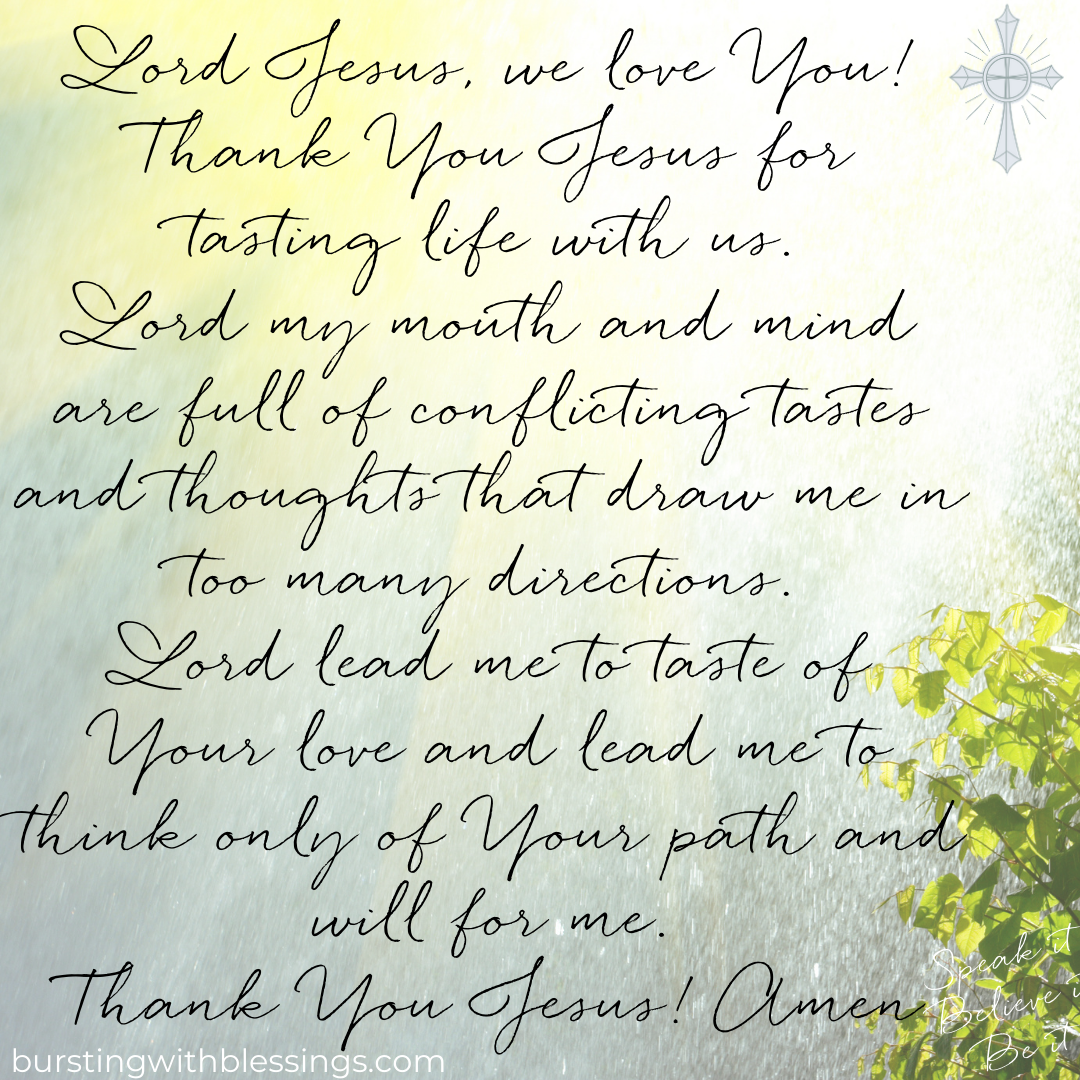 Lord Jesus, we love You!
Thank You Jesus for
tasting life with us.
Lord my mouth and mind
are full of conflicting tastes
and thoughts that draw me in
too many directions.
Lord lead me to taste of
Your love and lead me to
think only of Your path and
will for me.
Thank You Jesus! Amen
Speak it
Believe it
Be it
burstingwithblessings.com